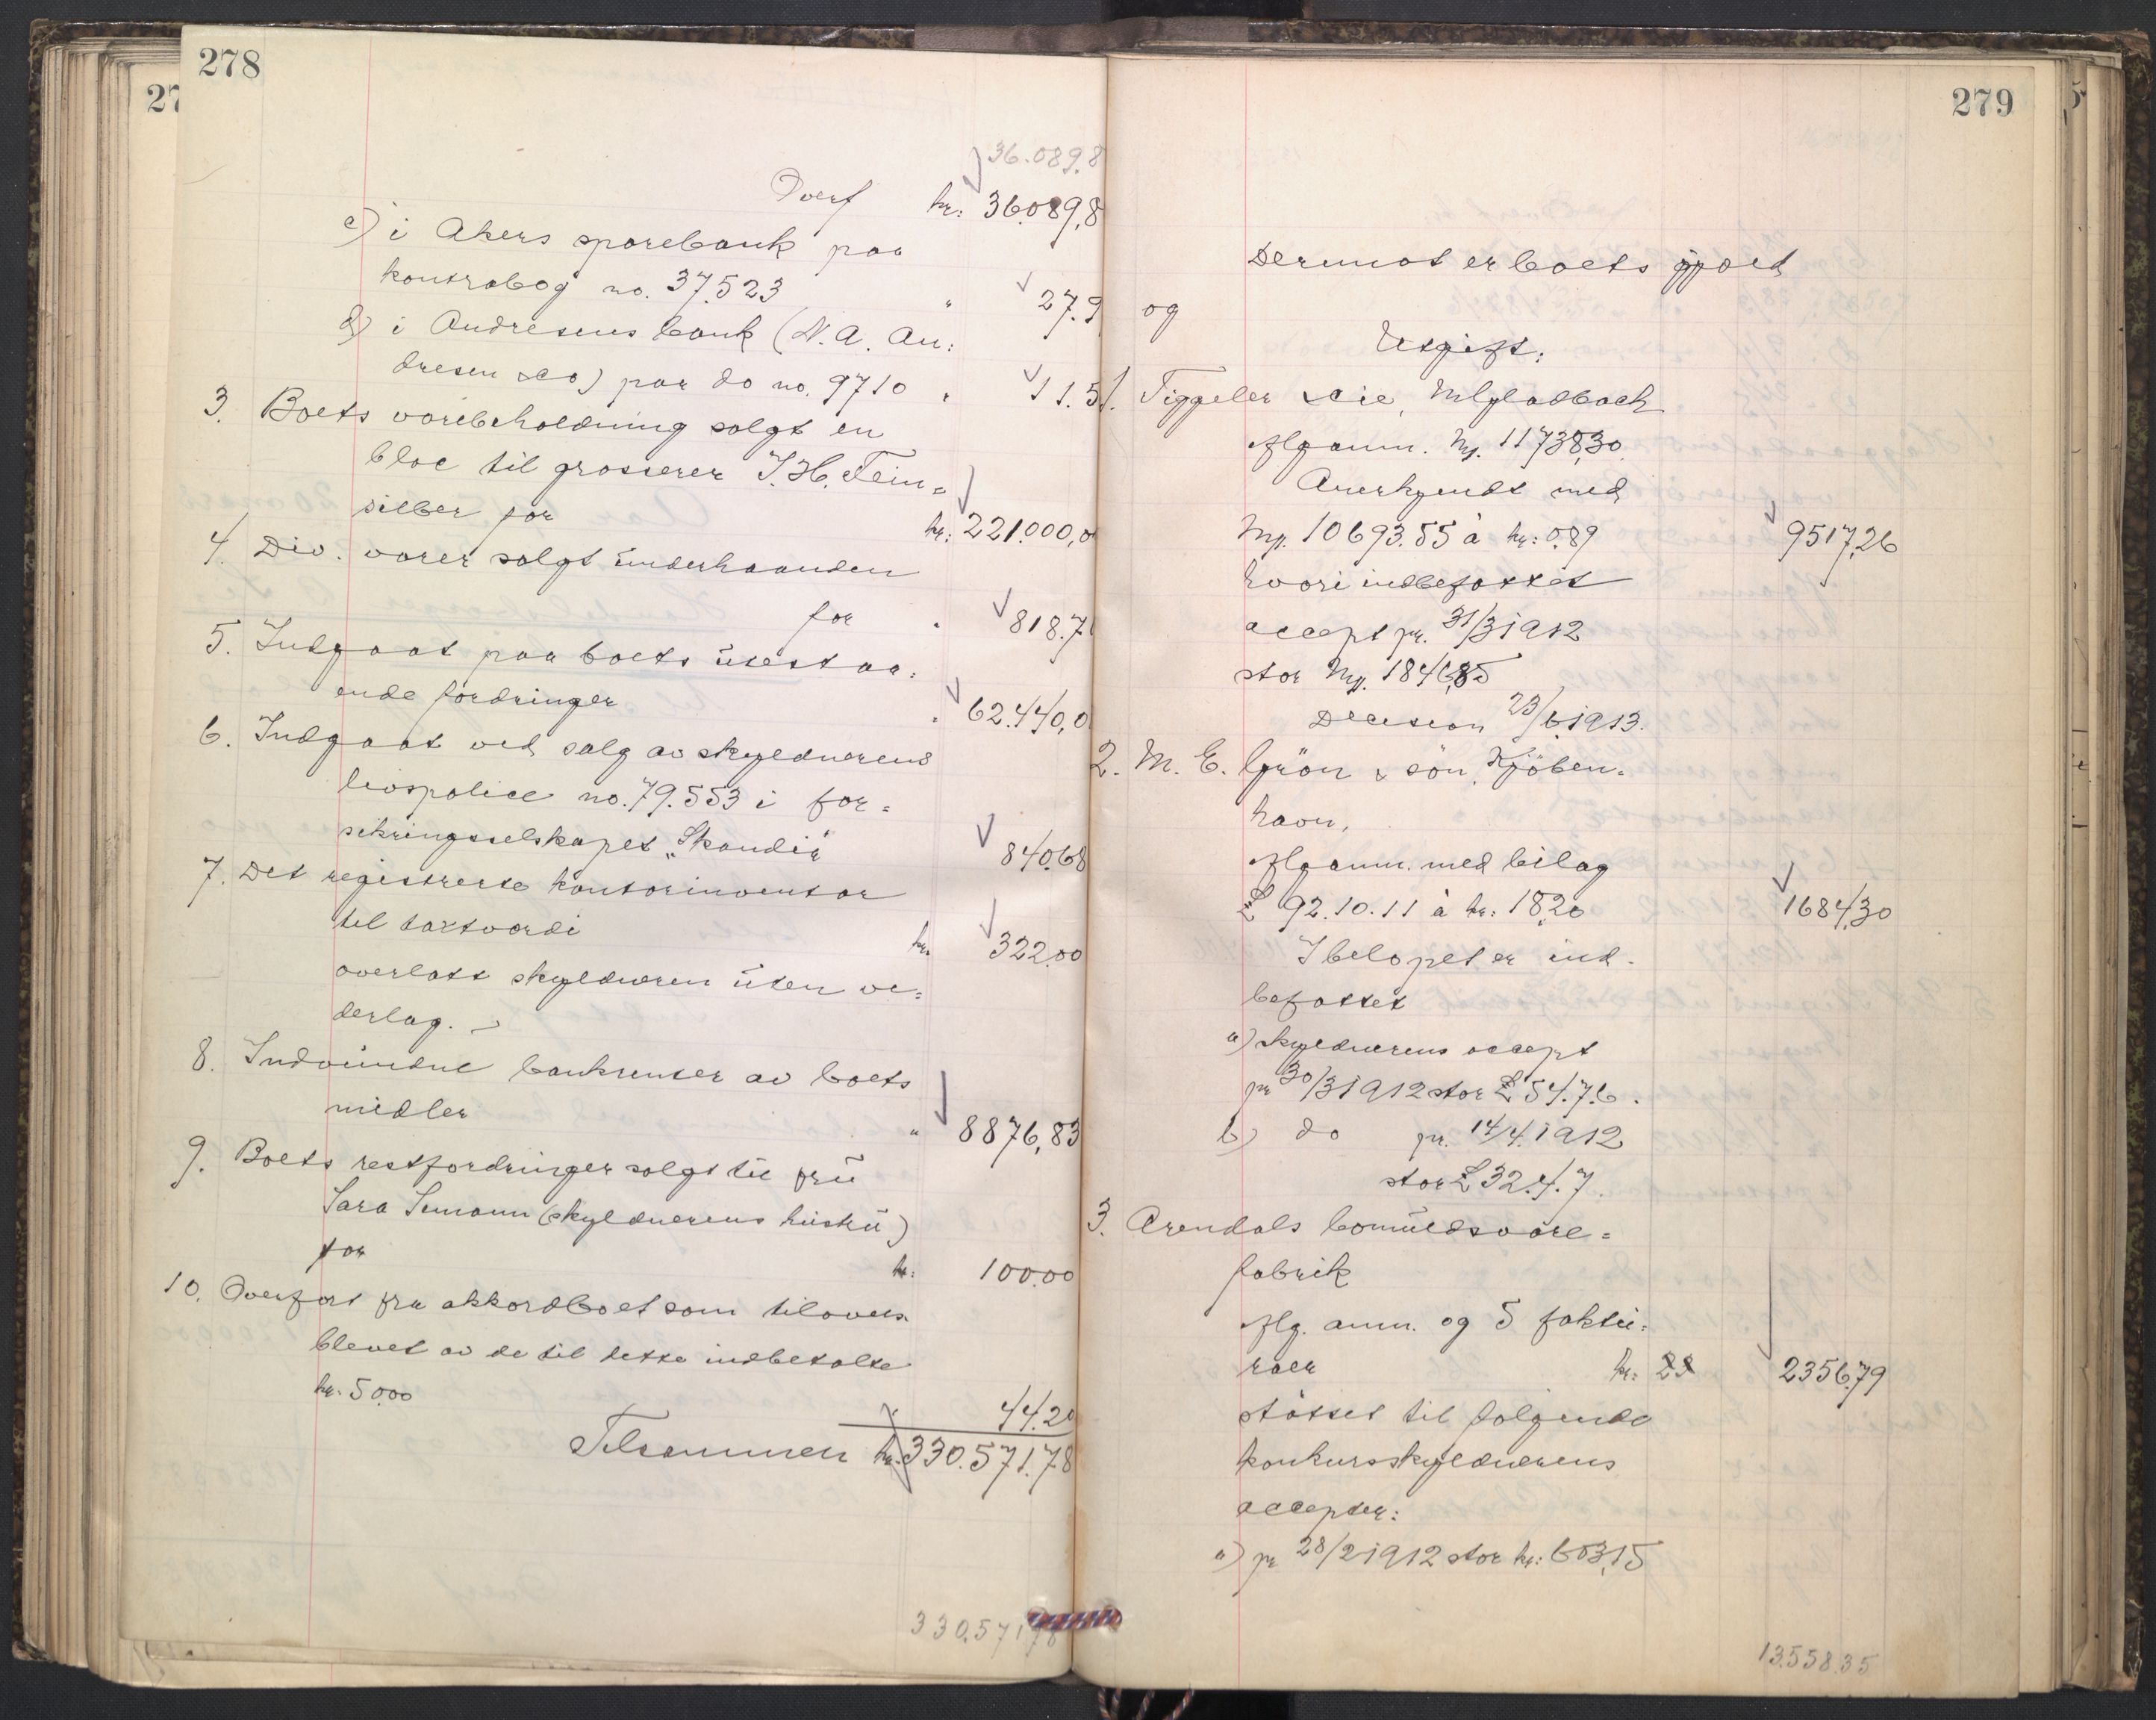 278
36.089.8
Overf kr: 36.089,8
c) i Akers sparebank paa
kontrabog no. 37.523 " 27.9
d) i Andresens bank (N. A. An:
dresen & Co) paa do no. 9710 " 11.5
3. Boets varebeholdning solgt en
bloc til grosserer J. H. Fein=
silber for kr: 221.000,0
4. Div. varer solgt underhaanden
for " 818.7
5. Indgaat paa boets utestaa:
ende fordringer " 62.440,0
6. Indgaat ved salg av skyldnerens
livspolice no. 79.553 i for=
sikringsselskapet „Skandia“ 840.68
7. Det registrerte kontorinventar
til takstværdi kr. 322.00
overlatt skyldneren uten ve=
derlag.
8. Indvundne bankrenter av boets
midler " 8876,83
9. Boets restfordringer solgt til fru
Sara Semann (skyldnerens hustru)
for kr: 100.00
10. Overført fra akkordboet som tilovers
blevet av de til dette indbetalte
kr. 50.00 44.20
Tilsammen kr. 330.571.78
330.571,78
279
Derimot er boets gjæld
og
Utgift:
1. Tiggeler & Cie, M/gladbach
iflg anm. Mk. 11738,30
Anerkjendt med
Mk. 10693.55 à kr: 0.89 9517,26
hvori indbefattet
accept pr. 31/3 1912
stor Mk. 1846,85
Decision 23/6 1913.
2. M. E. Grön & sön, Kjöben=
havn,
iflg anm. med bilag
£ 92.10.11 à kr: 18,20 1684,30
I belopet er ind-
befattet
a) skyldnerens accept
pr 30/3 1912 stor £ 54.7.6.
b) do pr. 14/4. 1912
stor £ 32.4.7.
3. Arendals bomuldsvare=
fabrik
iflg. anm. og 5 faktu:
raer kr: 23 2356.79
støttet til følgende
konkursskyldnerens
accepter:
a) pr 28/2 1912 stor kr: 603,15
13.558.35